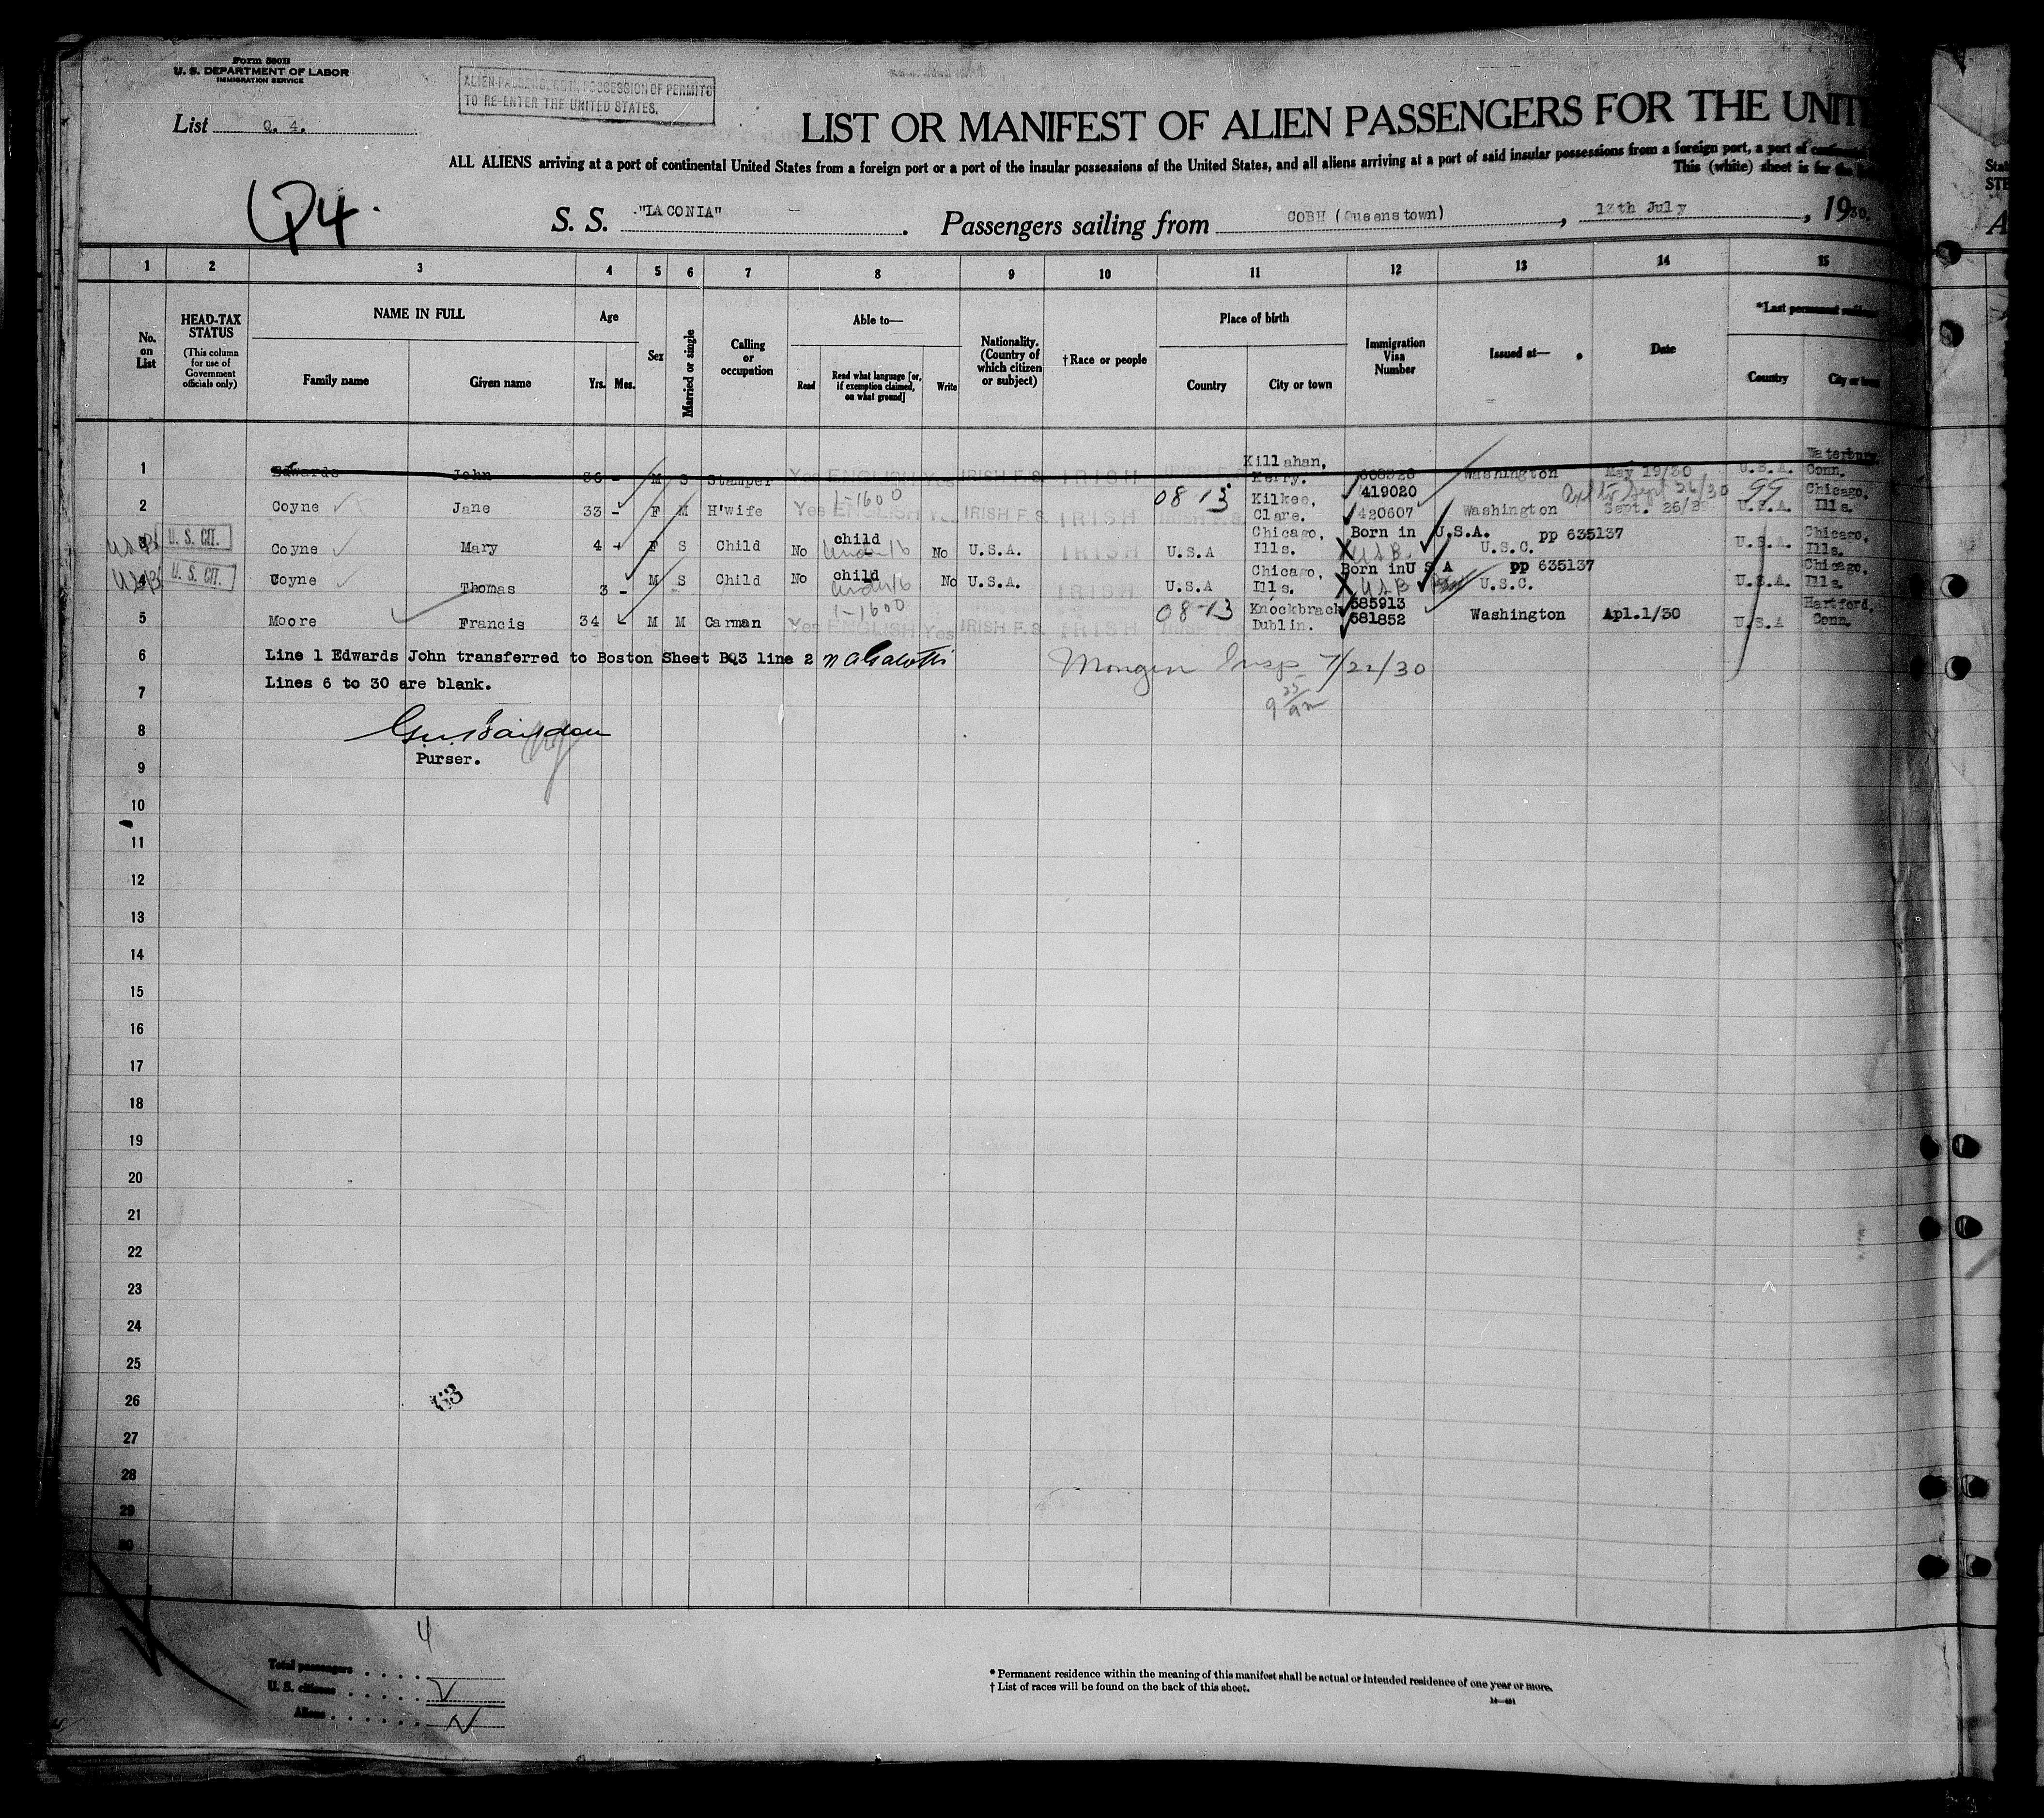 Form 500B
U. S. DEPARTMENT OF LABOR
IMMIGRATION SERVICE
ALIEN PASSENGERS IN POSSESSION OF PERMITS
TO RE-ENTER THE UNITED STATES.
List Q. 4.
LIST OR MANIFEST OF ALIEN PASSENGERS FOR THE UNITE
ALL ALIENS arriving at a port of continental United States from a foreign port or a port of the insular possessions of the United States, and all aliens arriving at a port of said insular possessions from a foreign port, a port of continental
This (white) sheet is for the
Q4.
S. S. "LACONIA" . Passengers sailing from COBH (Queenstown) , 13th July , 1930.
1 2 3 4 5 6 7 8 9 10 11 12 13 14 15
No. on List
HEAD-TAX STATUS (This column for use of Government officials only)
NAME IN FULL
Family name Given name
Age Yrs. Mos.
Sex
Married or single
Calling or occupation
Able to—
Read Read what language [or, if exemption claimed, on what ground] Write
Nationality. (Country of which citizen or subject)
†Race or people
Place of birth
Country City or town
Immigration Visa Number
Issued at—
Date
*Last permanent residence
Country City or town
1 Edwards John 36 - M S Stamper Yes ENGLISH Yes IRISH F.S. IRISH IRISH F.S. Killahan, Kerry. Washington May 19/30 U.S.A. Waterbury, Conn.
2 Coyne Jane 33 - F M H'wife Yes 1-1600 ENGLISH Yes IRISH F.S. IRISH 08 13 IRISH F.S. Kilkee, Clare. 419020 420607 Washington Ext to Sept 26/30 Sept. 26/29 99 U.S.A. Chicago, Ills.
USB 3 U. S. CIT. Coyne Mary 4 - F S Child No child Under 16 No U.S.A. IRISH U.S.A Chicago, Ills. Born in U.S.A. USB U.S.C. pp 635137 U.S.A. Chicago, Ills.
USB 4 U. S. CIT. Coyne Thomas 3 - M S Child No child under 16 No U.S.A. IRISH U.S.A Chicago, Ills. Born in U S A USB U.S.C. pp 635137 U.S.A. Chicago, Ills.
5 Moore Francis 34 M M Carman Yes 1-1600 ENGLISH Yes IRISH F.S. IRISH 08-13 Knockbrach Dublin. 585913 581852 Washington Apl.1/30 U.S.A Hartford, Conn.
6 Line 1 Edwards John transferred to Boston Sheet BQ3 line 2 Insp 7/22/30
7 Lines 6 to 30 are blank.
9 25/am
8
Purser.
9
10
11
12
13
14
15
16
17
18
19
20
21
22
23
24
25
26
27
28
29
30
63
4
Total passengers
U. S. citizens
Aliens
* Permanent residence within the meaning of this manifest shall be actual or intended residence of one year or more.
† List of races will be found on the back of this sheet.